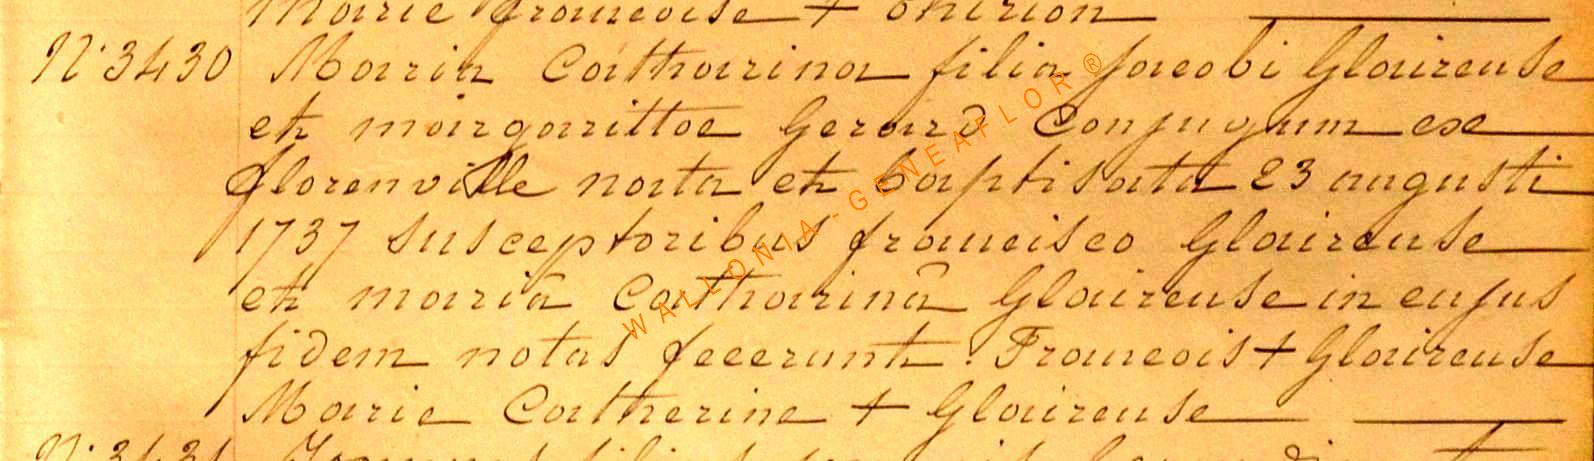 Marie francoise + thirion
N° 3430 Maria Catharina filia jacobi Glaireuse
et margarittae Gerard Conjugum ex
florenville nata et baptisata 23 augusti
1737 susceptoribus francisco Glaireuse
et mariâ Catharinâ Glaireuse in cujus
fidem notas fecerunt. Francois + Glaireuse
Marie Catherine + Glaireuse
N° 3431
WALLONIA-GENEAFLOR ®